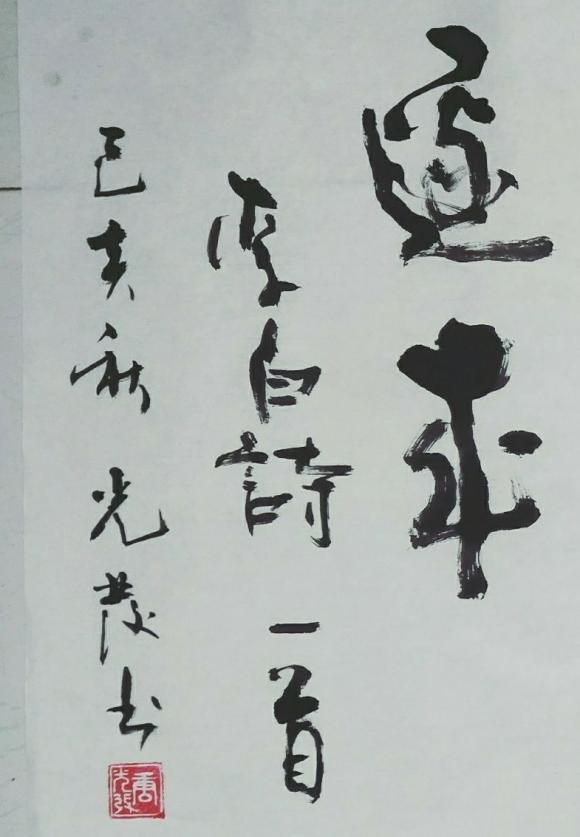 邊來
李白詩一首
己亥秋 光發书